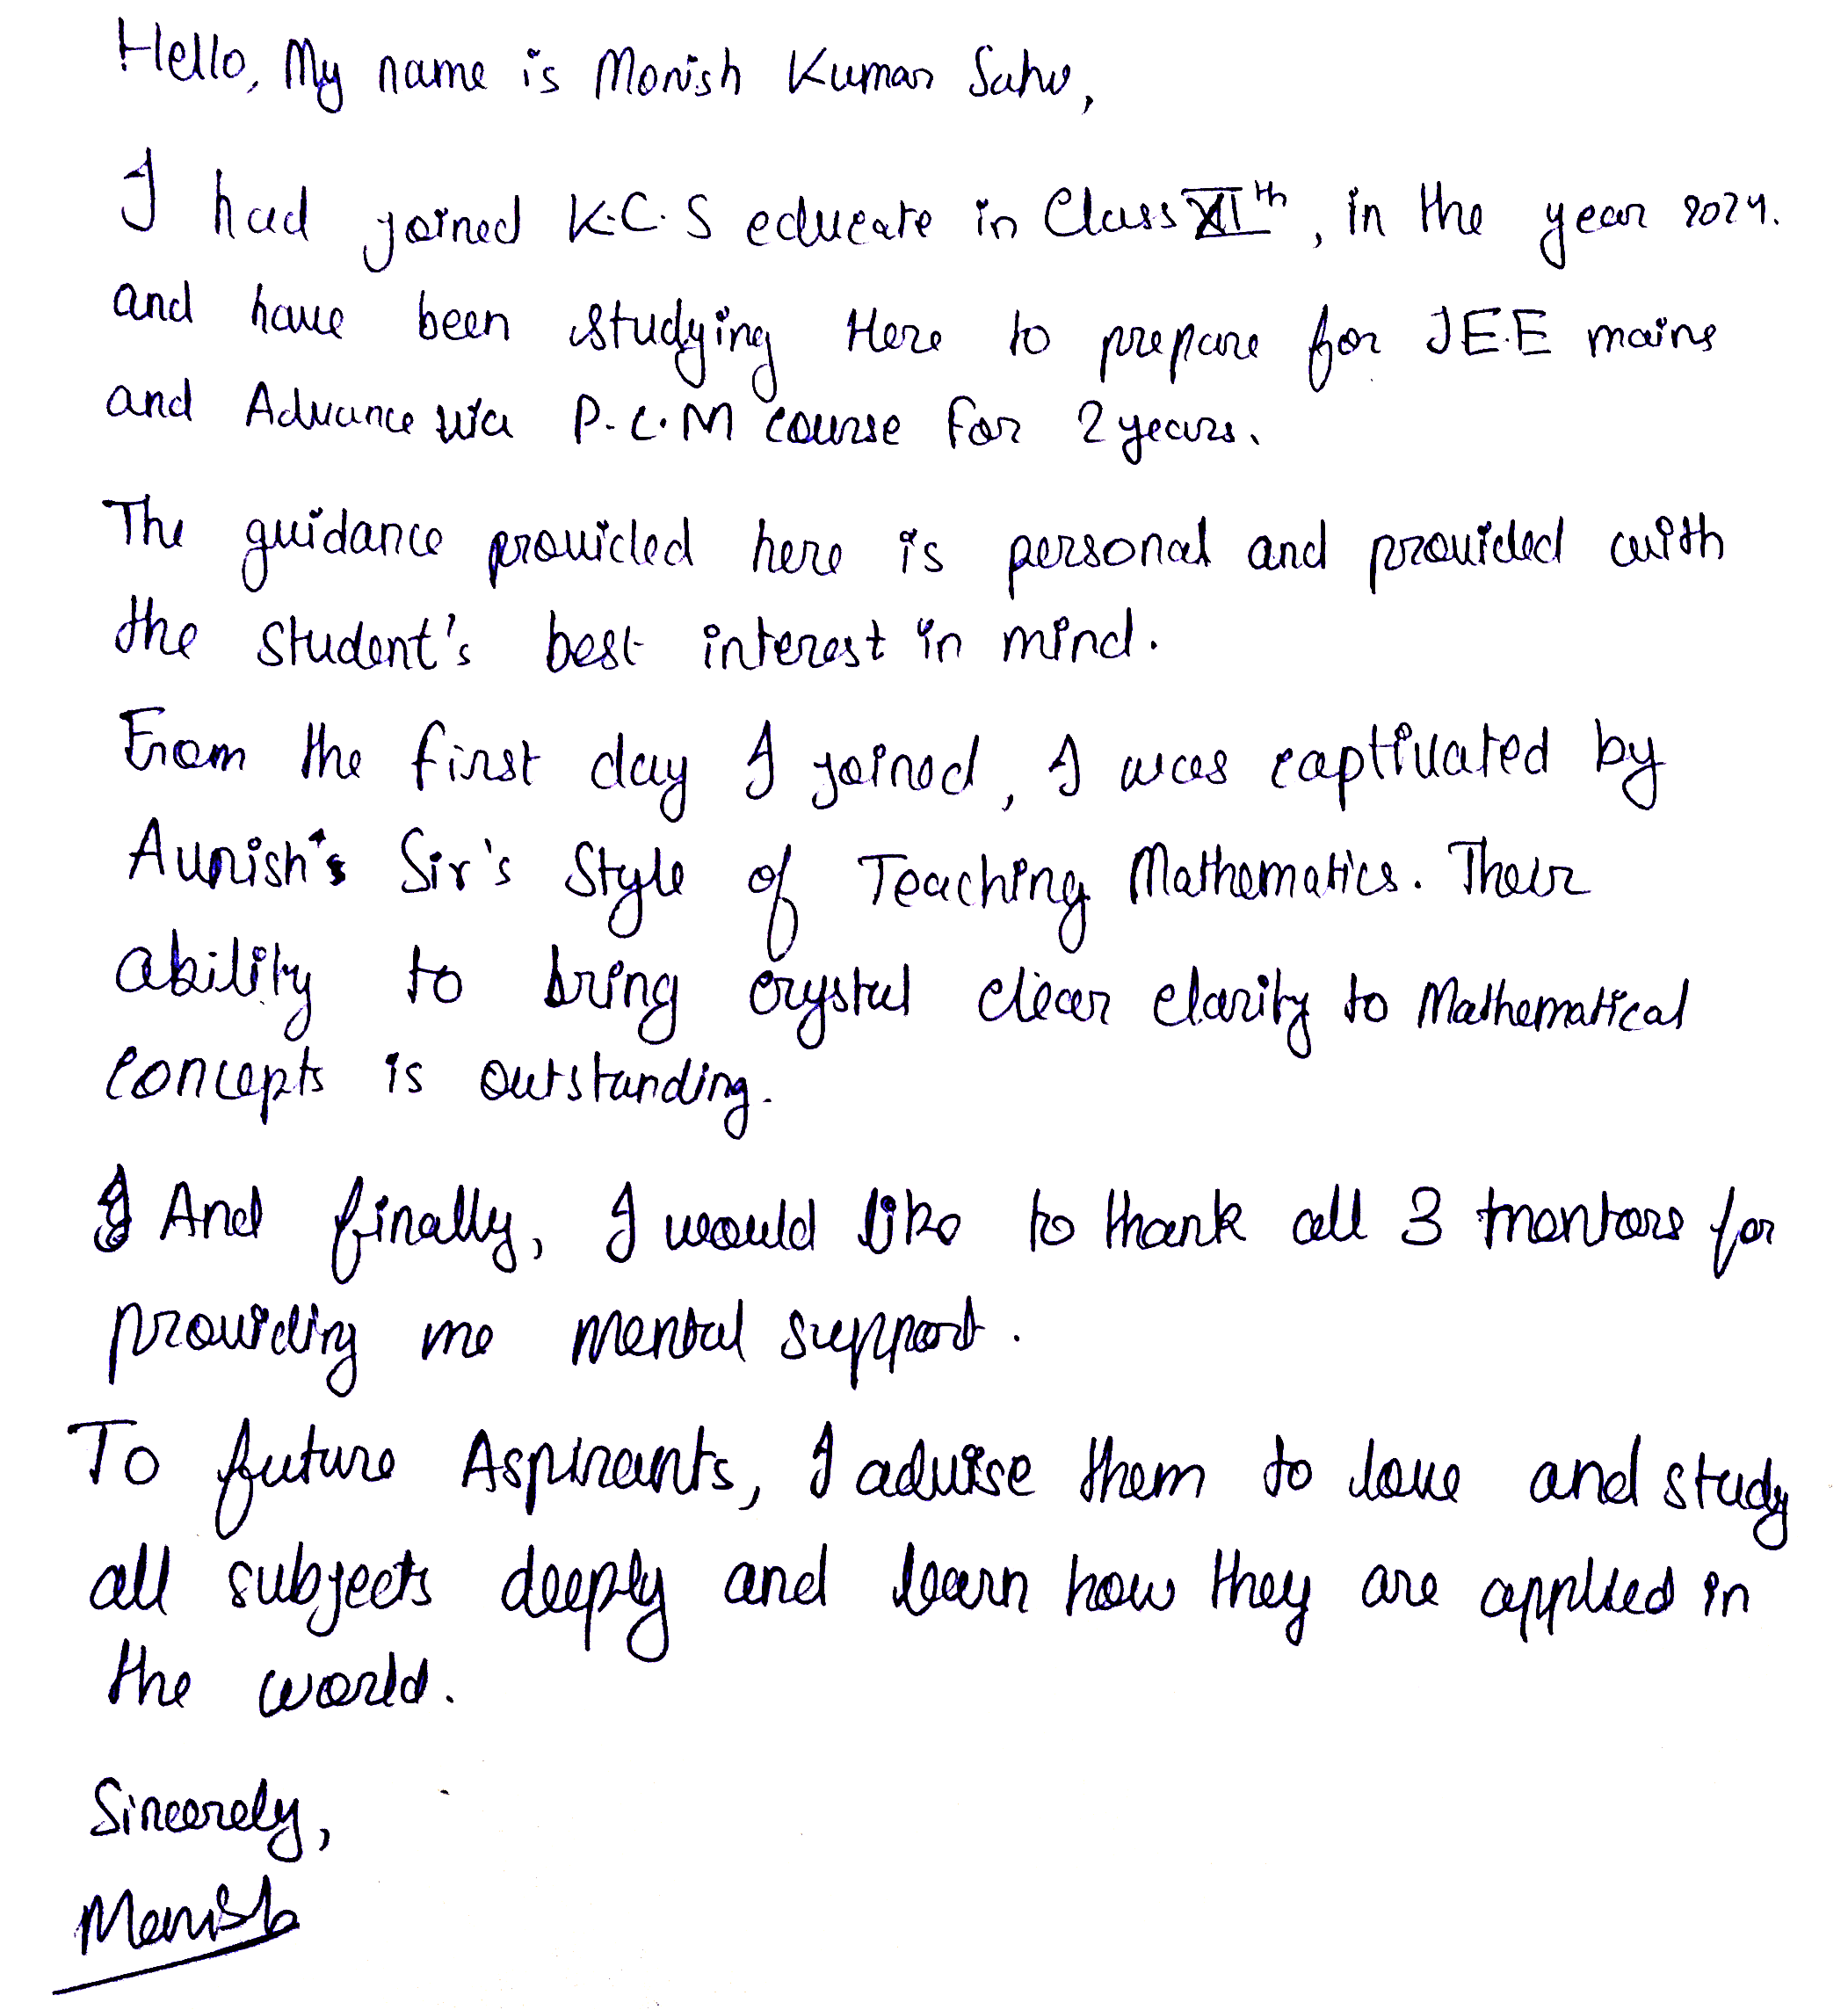 Hello, My name is Monish Kumar Sahu,
I had joined K.C.S educate in Class XIth, in the year 2024.
and have been studying Here to prepare for JE.E mains
and Advance via P.C.M course for 2 years.
The guidance provided here is personal and provided with
the student's best interest in mind.
From the first day I joined, I was captivated by
Aunish's Sir's Style of Teaching Mathematics. Their
ability to bring crystal clear clarity to Mathematical
concepts is outstanding.
And finally, I would like to thank all 3 mentors for
providing me mental support.
To future Aspirants, I advise them to love and study
all subjects deeply and learn how they are applied in
the world.
Sincerely,
Monish